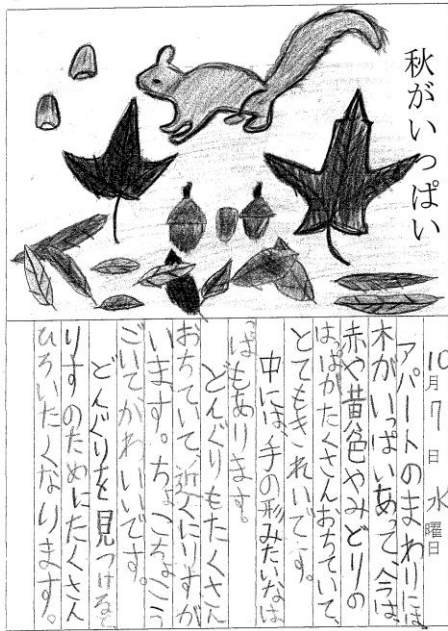 秋がいっぱい
10月7日水曜日
アパートのまわりには
木がいっぱいあって、今は、
赤や黄色やみどりの
はっぱがたくさんおちていて、
とてもきれいです。
中には、手の形みたいなは
っぱもあります。
どんぐりもたくさん
おちていて、近くにりすが
います。ちょこちょこう
ごいてかわいいです。
どんぐりを見つけると
りすのためにたくさん
ひろいたくなります。